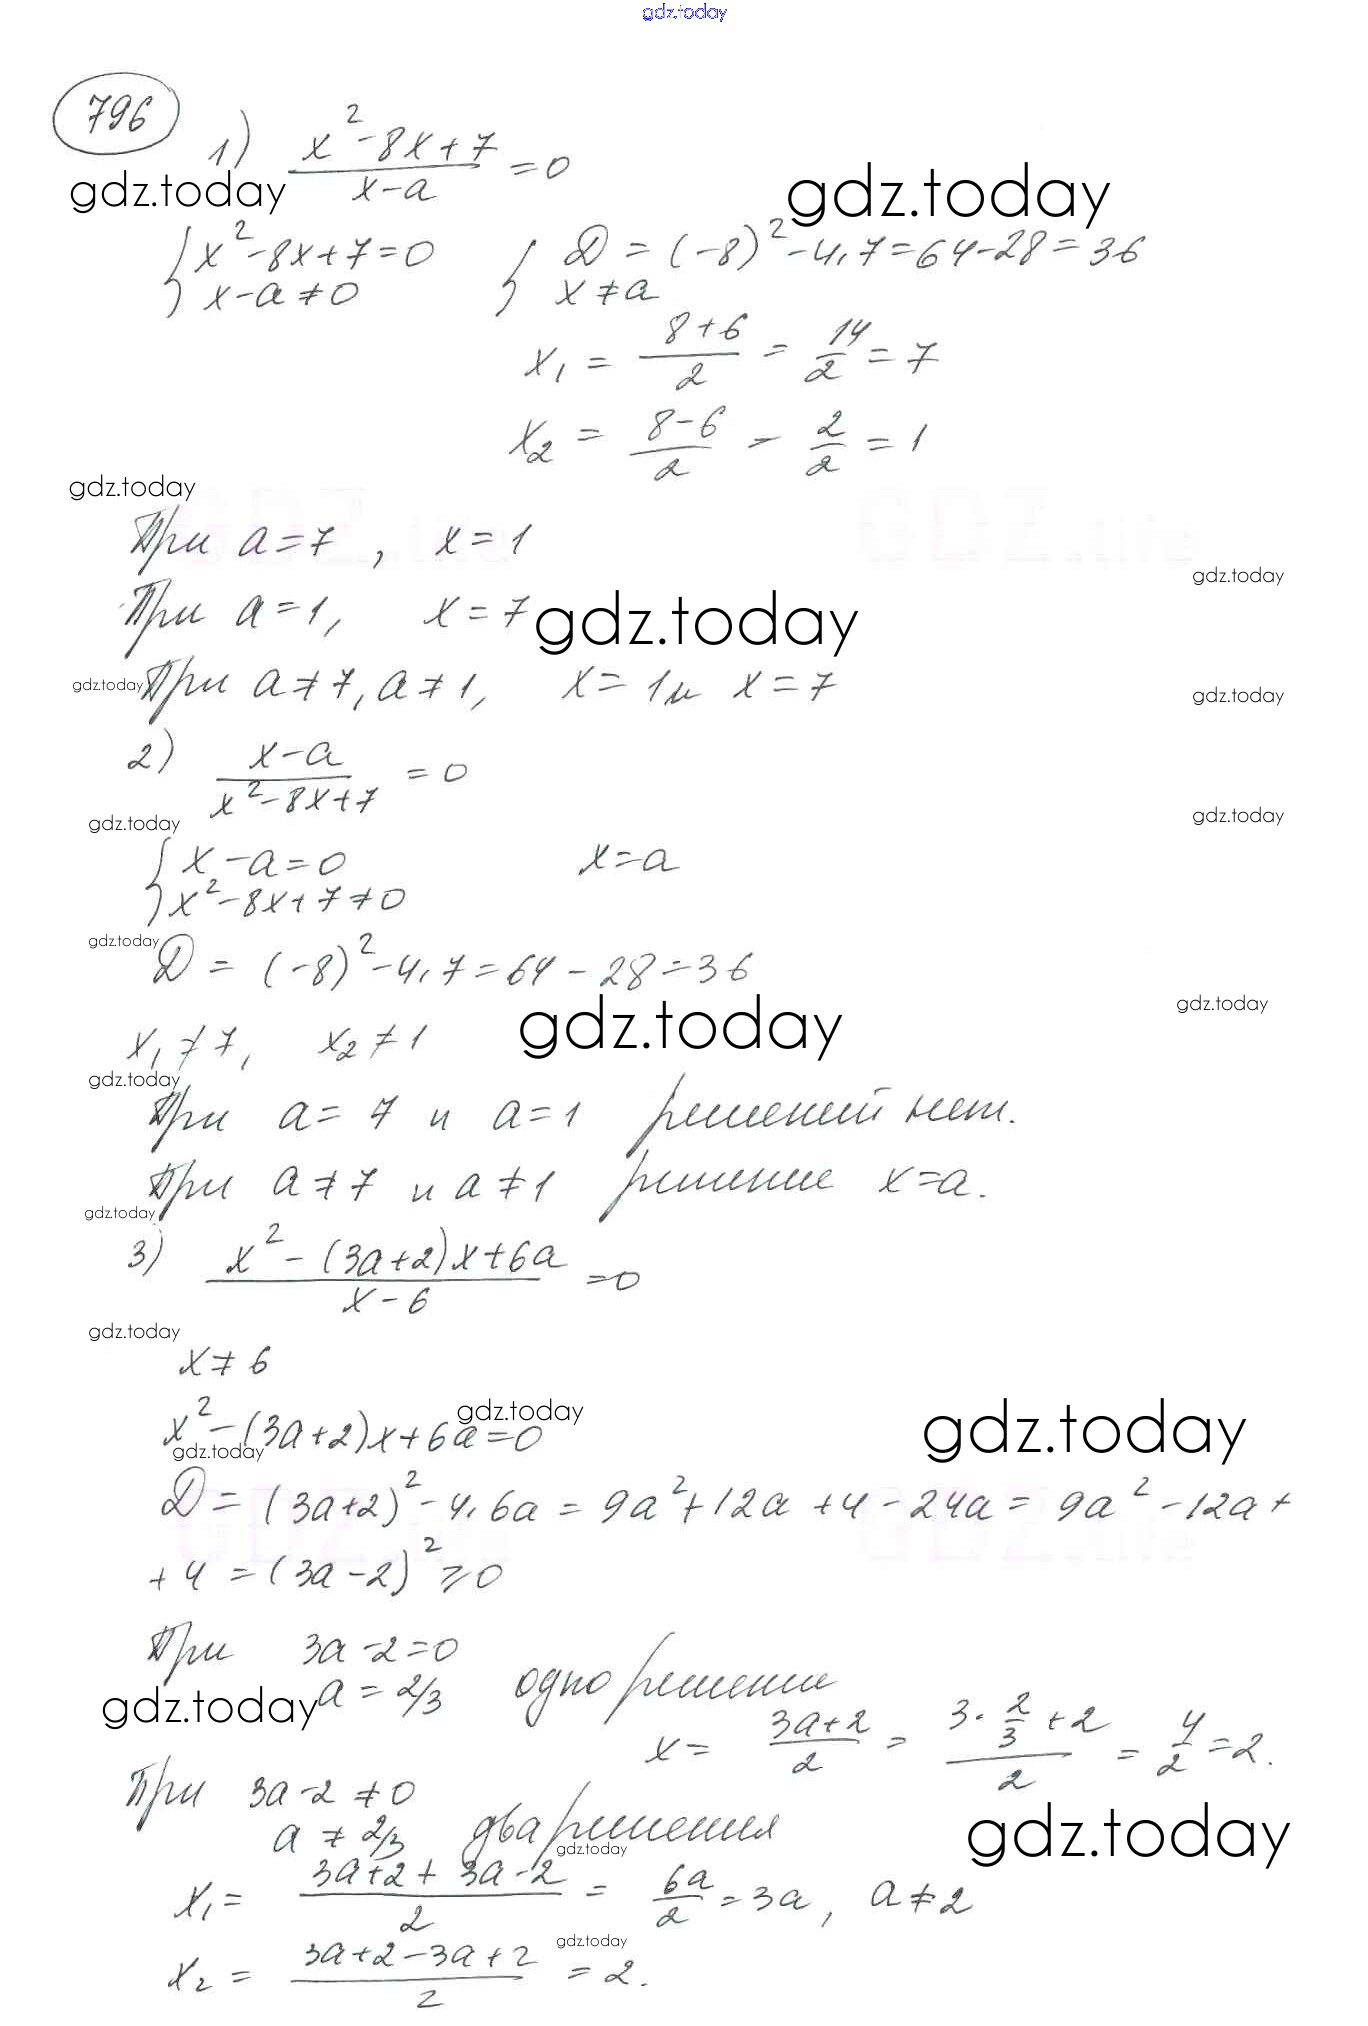 gdz.today
796
1) (x² - 8x + 7)/(x - a) = 0
gdz.today gdz.today
{ x² - 8x + 7 = 0 { D = (-8)² - 4·7 = 64 - 28 = 36
x - a ≠ 0 x ≠ a
x₁ = (8 + 6)/2 = 14/2 = 7
x₂ = (8 - 6)/2 = 2/2 = 1
gdz.today
При a = 7, x = 1
gdz.today
При a = 1, x = 7
gdz.today
gdz.today При a ≠ 7, a ≠ 1, x = 1 и x = 7
gdz.today
2) (x - a)/(x² - 8x + 7) = 0
gdz.today gdz.today
{ x - a = 0 x = a
x² - 8x + 7 ≠ 0
gdz.today
D = (-8)² - 4·7 = 64 - 28 = 36
gdz.today gdz.today
x₁ ≠ 7, x₂ ≠ 1
gdz.today
При a = 7 и a = 1 решений нет.
При a ≠ 7 и a ≠ 1 решение x = a.
gdz.today
3) (x² - (3a + 2)x + 6a)/(x - 6) = 0
gdz.today
x ≠ 6
gdz.today gdz.today
x² - (3a + 2)x + 6a = 0
gdz.today
D = (3a + 2)² - 4·6a = 9a² + 12a + 4 - 24a = 9a² - 12a +
+ 4 = (3a - 2)² ⩾ 0
При 3a - 2 = 0
gdz.today a = 2/3 одно решение
x = (3a + 2)/2 = (3·2/3 + 2)/2 = 4/2 = 2.
При 3a - 2 ≠ 0
a ≠ 2/3 два решения
gdz.today gdz.today
x₁ = (3a + 2 + 3a - 2)/2 = 6a/2 = 3a, a ≠ 2
gdz.today
x₂ = (3a + 2 - 3a + 2)/2 = 2.